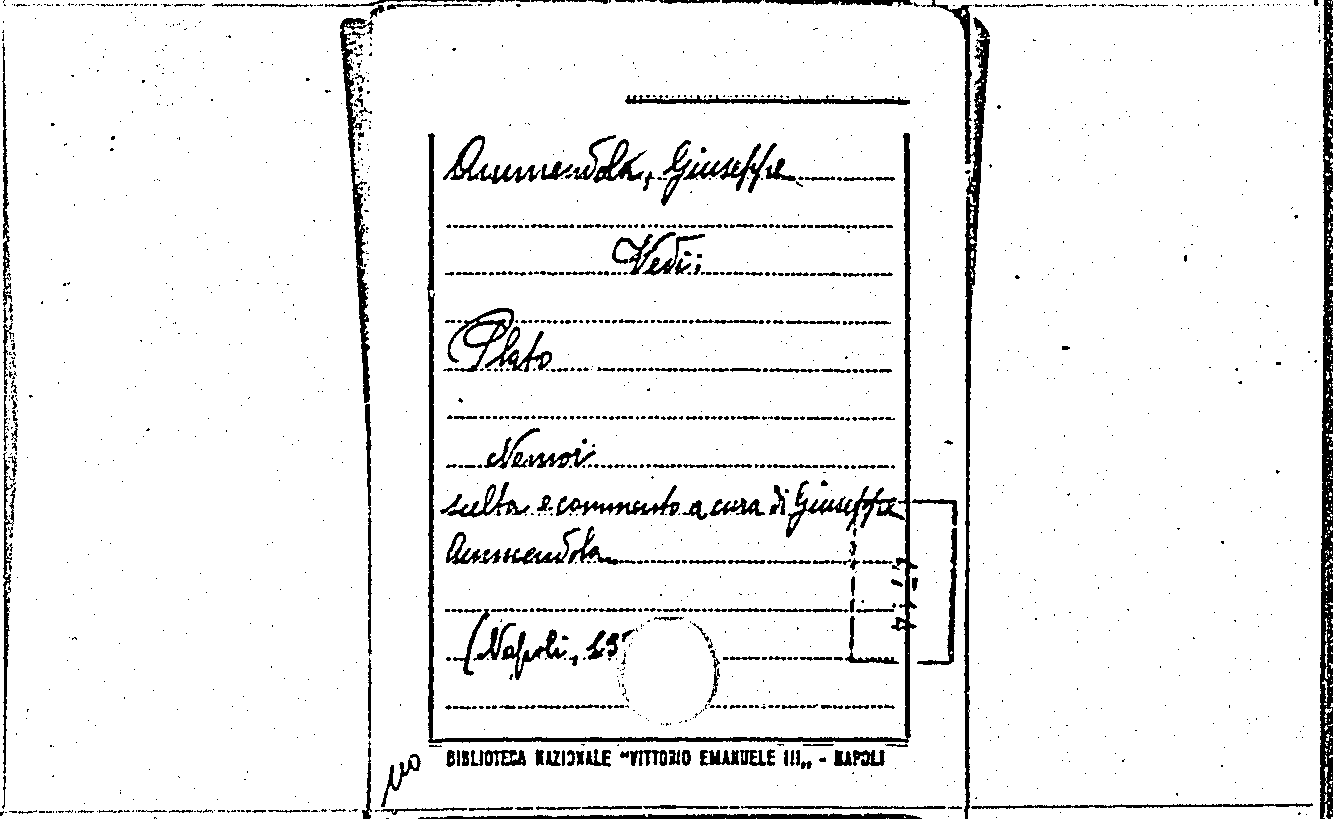 Ammendola, Giuseppe
Vedi:
Plato
Nomoi
scelta e commento a cura di Giuseppe
Ammendola
(Napoli, 19
BIBLIOTECA NAZIONALE "VITTORIO EMANUELE III„ - NAPOLI